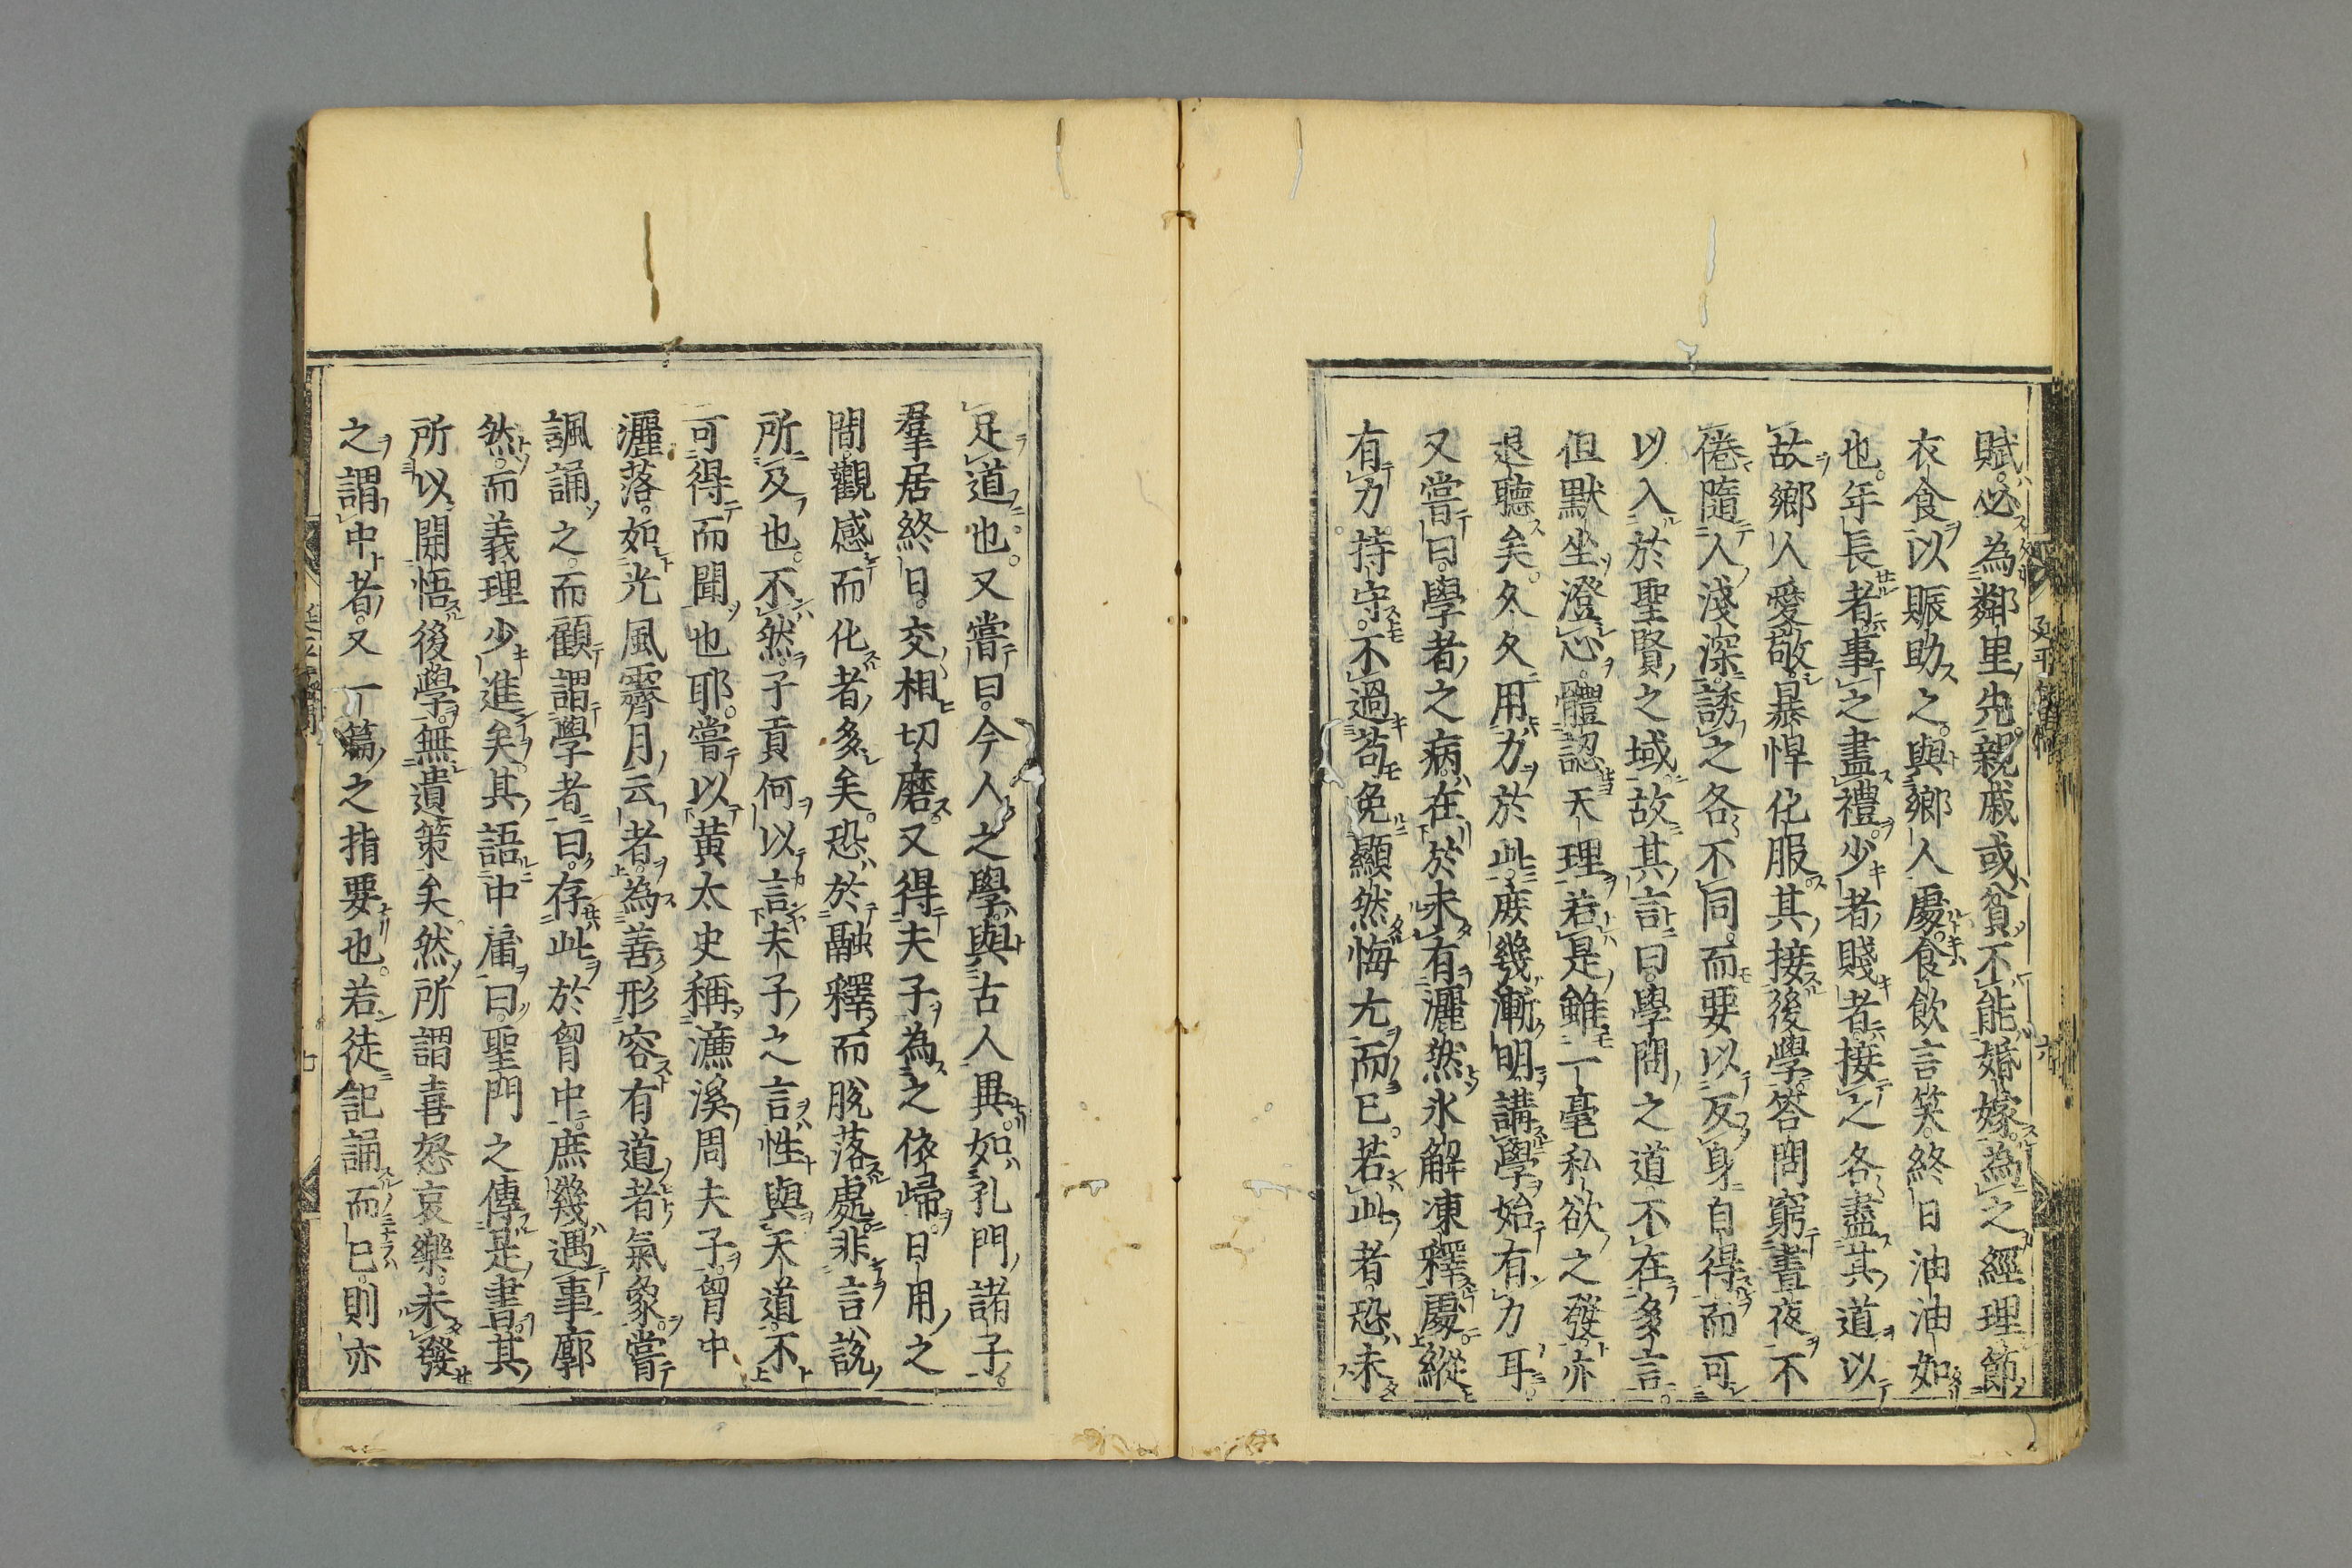 賦必為鄰里先親戚或貧不能婚嫁為之經理節
衣食以賑助之與鄉人處食飲言笑終日油油如
也年長者事之盡禮少者賤者接之各盡其道以
故鄉人愛敬暴悍化服其接後學答問窮晝夜不
倦隨人淺深誘之各不同而要以反身自得而可
以入於聖賢之域故其言曰學問之道不在多言
但默坐澄心體認天理若是雖一毫私欲之發亦
退聽矣久久用力於此庶幾漸明講學始有力耳
又嘗曰學者之病在於未有灑然氷解凍釋處縱
有力持守不過苟免顯然悔尤而已若此者恐未
足道也又嘗曰今人之學與古人異如孔門諸子
羣居終日交相切磨又得夫子為之依歸日用之
間觀感而化者多矣恐於融釋而脫落處非言說
所及也不然子貢何以言夫子之言性與天道不
可得而聞也耶嘗以黃太史稱濂溪周夫子胷中
灑落如光風霽月云者為善形容有道者氣象嘗
諷誦之而顧謂學者曰存此於胷中庶幾遇事廓
然而義理少進矣其語中庸曰聖門之傳是書其
所以開悟後學無遺策矣然所謂喜怒哀樂未發
之謂中者又一篇之指要也若徒記誦而已則亦